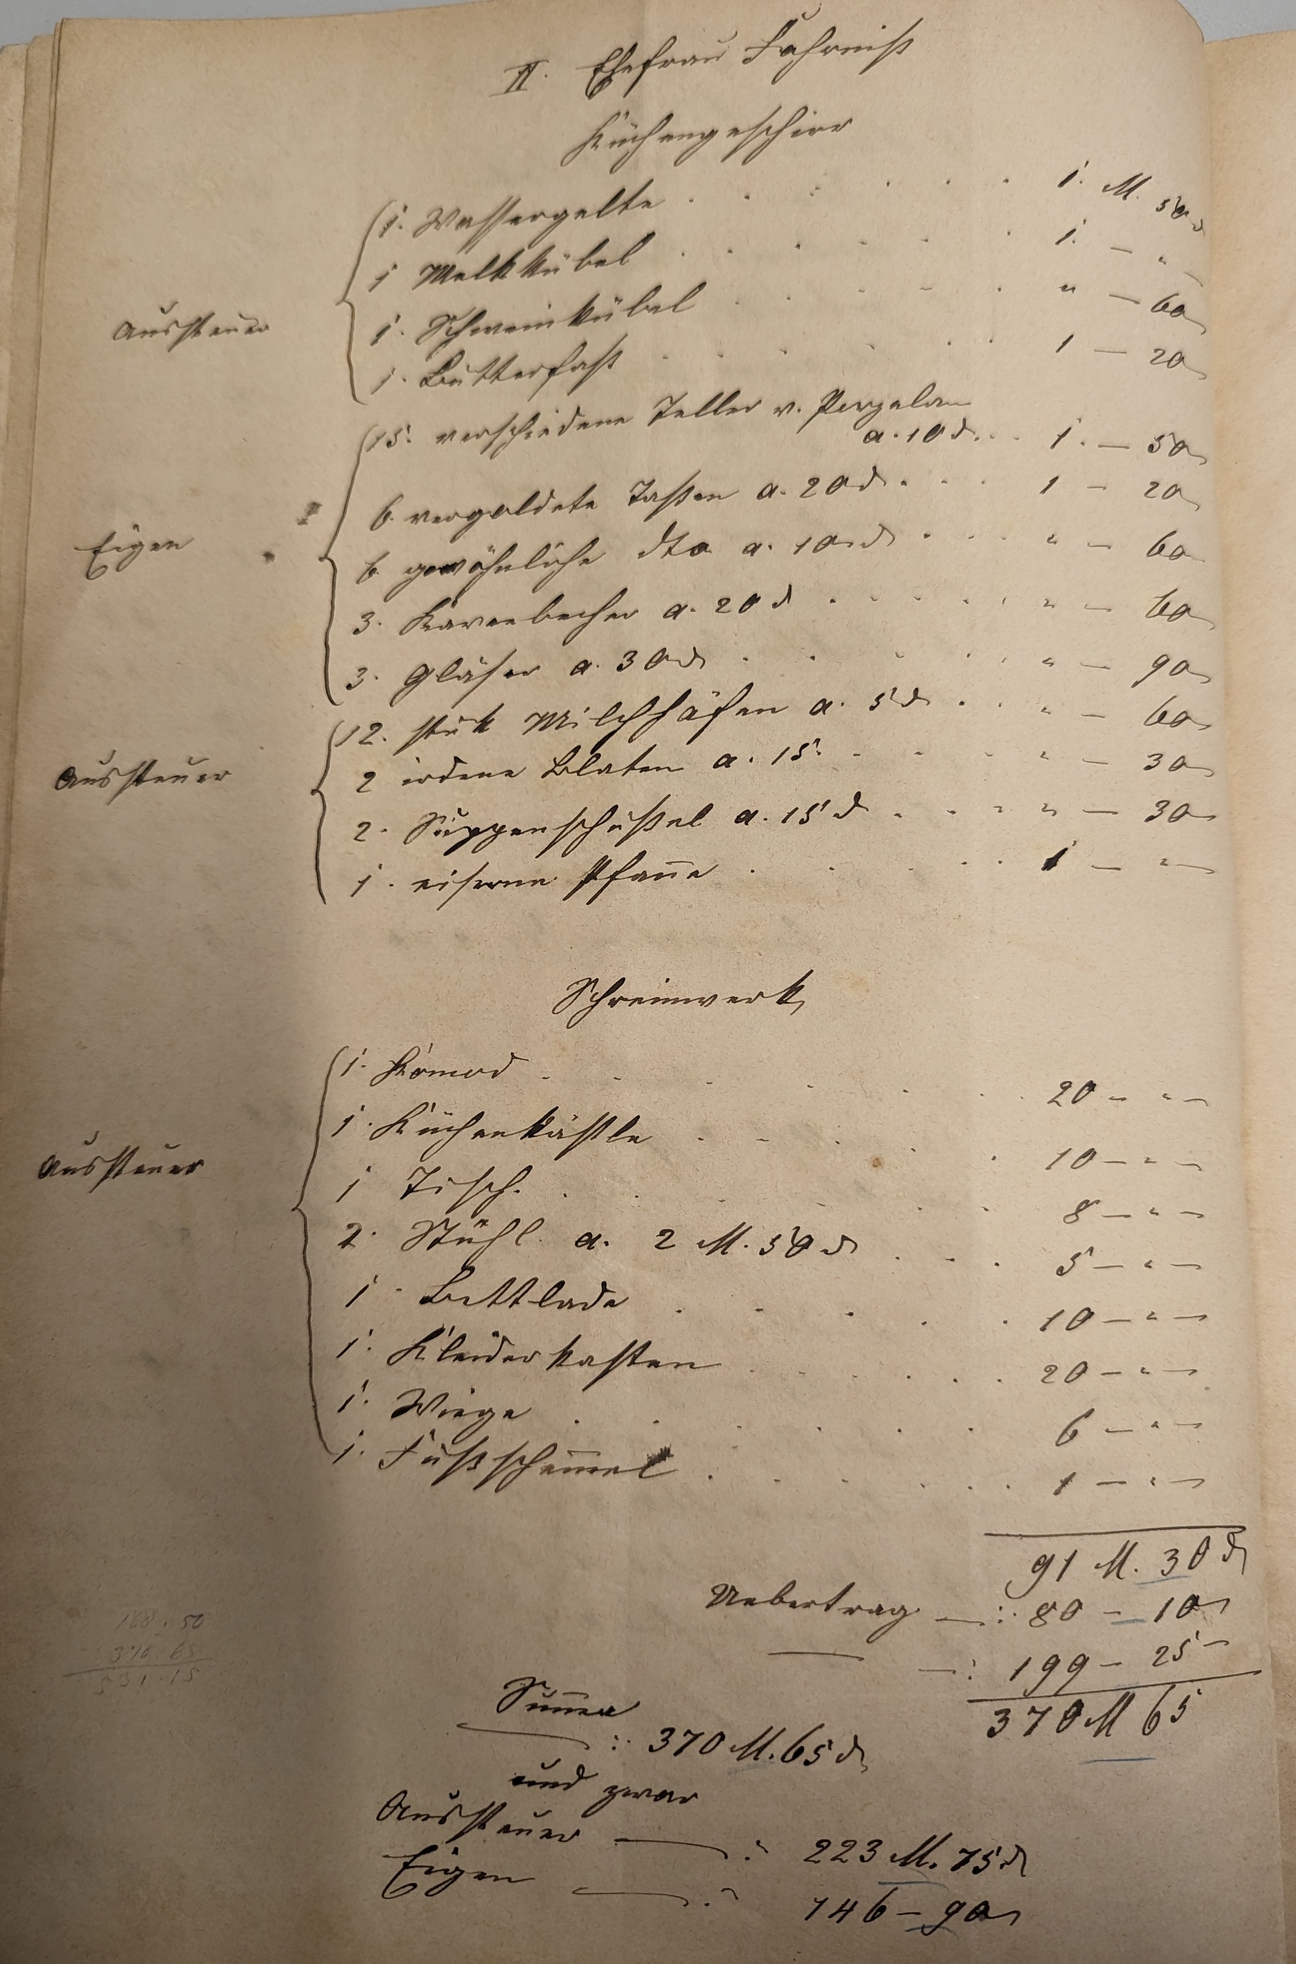 II. Ehefrau Fahrniß
Küchengeschirr
1. Wassergelte . . . . . 1. M. 50 d
1 Melkkübel . . . . . 1. — "
Aussteuer
1. Schweinkübel . . . . . " — 60
1. Butterfaß . . . . . 1 — 20
15. verschiedene Teller v. Porzelan
a. 10 d. . . 1. — 50
6. vergoldete Taßen a. 20 d . . . 1 — 20
Eigen
6 gewöhnliche dto a. 10 d . . . " — 60
3. Karenbecher a. 20 d . . . . " — 60
3. Gläser a. 30 d . . . . " — 90
12. stük Milchhäfen a. 5 d . . . " — 60
Aussteuer
2 irdene Blaten a. 15. . . . " — 30
2. Suppenschüßel a. 15 d . . . " — 30
1. eiserne Pfañe . . . . 1 — "
Schreinwerk
1. Komod . . . . . 20 — " —
1. Küchenkästle . . . . 10 — " —
Aussteuer
1 Tisch. . . . . . 8 — " —
2. Stühl a. 2 M. 50 d . . . 5 — " —
1. Bettlade . . . . . 10 — " —
1. Kleiderkasten . . . . . 20 — " —
1. Wiege . . . . . 6 — " —
1. Fußscheml̃ . . . . . 1 — " —
91 M. 30 d
Uebertrag —: 80 — 10
—: 199 — 25 —
168.50
370.65
531.15
370 M 65
Sum̃a
: 370 M. 65 d
und zwar
Aussteuer —: 223 M. 75 d
Eigen —: 146 — 90